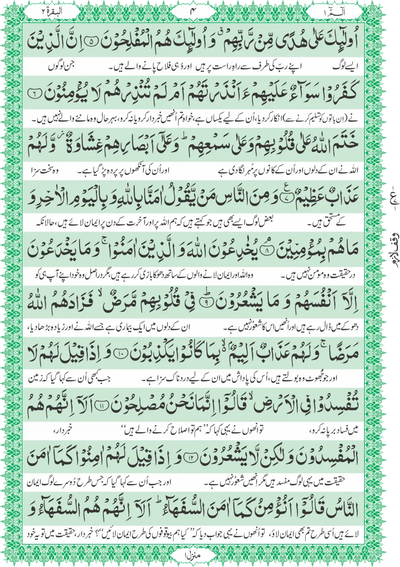 الٓمّٓ ۱
۴
البقرۃ ۲
اُولٰٓئِكَ عَلٰى هُدًى مِّنْ رَّبِّهِمْ ۙ وَ اُولٰٓئِكَ هُمُ الْمُفْلِحُوْنَ ﴿۵﴾ اِنَّ الَّذِيْنَ
ایسے لوگ اپنے رب کی طرف سے راہِ راست پر ہیں اور وہی فلاح پانے والے ہیں۔ جن لوگوں
كَفَرُوْا سَوَآءٌ عَلَيْهِمْ ءَاَنْذَرْتَهُمْ اَمْ لَمْ تُنْذِرْهُمْ لَا يُؤْمِنُوْنَ ﴿۶﴾
نے (ان باتوں کو تسلیم کرنے سے) انکار کر دیا، اُن کے لیے یکساں ہے، خواہ تم انھیں خبردار کرو یا نہ کرو، بہرحال وہ ماننے والے نہیں ہیں۔
خَتَمَ اللّٰهُ عَلٰى قُلُوْبِهِمْ وَعَلٰى سَمْعِهِمْ ؕ وَعَلٰٓى اَبْصَارِهِمْ غِشَاوَةٌ ۫ وَّلَهُمْ
اللہ نے ان کے دلوں اور ان کے کانوں پر مہر لگا دی ہے اور اُن کی آنکھوں پر پردہ پڑ گیا ہے۔ وہ سخت سزا
عَذَابٌ عَظِيْمٌ ﴿۷﴾ وَ مِنَ النَّاسِ مَنْ يَّقُوْلُ اٰمَنَّا بِاللّٰهِ وَ بِالْيَوْمِ الْاٰخِرِ وَ
کے مستحق ہیں۔ بعض لوگ ایسے بھی ہیں جو کہتے ہیں کہ ہم اللہ پر اور آخرت کے دن پر ایمان لائے ہیں، حالانکہ
مَا هُمْ بِمُؤْمِنِيْنَ ﴿۸﴾ يُخٰدِعُوْنَ اللّٰهَ وَ الَّذِيْنَ اٰمَنُوْا ۚ وَ مَا يَخْدَعُوْنَ
درحقیقت وہ مومن نہیں ہیں۔ وہ اللہ اور ایمان لانے والوں کے ساتھ دھوکا بازی کر رہے ہیں، مگر دراصل وہ خود اپنے آپ ہی کو
اِلَّآ اَنْفُسَهُمْ وَ مَا يَشْعُرُوْنَ ﴿۹﴾ فِيْ قُلُوْبِهِمْ مَّرَضٌ ۙ فَزَادَهُمُ اللّٰهُ
دھوکے میں ڈال رہے ہیں اور انھیں اس کا شعور نہیں ہے۔ ان کے دلوں میں ایک بیماری ہے جسے اللہ نے اور زیادہ بڑھا دیا،
مَرَضًا ۚ وَ لَهُمْ عَذَابٌ اَلِيْمٌۢ ۙ۬ بِمَا كَانُوْا يَكْذِبُوْنَ ﴿۱۰﴾ وَ اِذَا قِيْلَ لَهُمْ لَا
اور جو جھوٹ وہ بولتے ہیں، اُس کی پاداش میں ان کے لیے دردناک سزا ہے۔ جب کبھی اُن سے کہا گیا کہ زمین
تُفْسِدُوْا فِي الْاَرْضِ ۙ قَالُوْٓا اِنَّمَا نَحْنُ مُصْلِحُوْنَ ﴿۱۱﴾ اَلَآ اِنَّهُمْ هُمُ
میں فساد برپا نہ کرو، تو انھوں نے یہی کہا کہ ”ہم تو اصلاح کرنے والے ہیں“ خبردار،
الْمُفْسِدُوْنَ وَ لٰكِنْ لَّا يَشْعُرُوْنَ ﴿۱۲﴾ وَ اِذَا قِيْلَ لَهُمْ اٰمِنُوْا كَمَآ اٰمَنَ
حقیقت میں یہی لوگ مفسد ہیں مگر انھیں شعور نہیں ہے۔ اور جب اُن سے کہا گیا کہ جس طرح دُوسرے لوگ ایمان
النَّاسُ قَالُوْٓا اَنُؤْمِنُ كَمَآ اٰمَنَ السُّفَهَآءُ ؕ اَلَآ اِنَّهُمْ هُمُ السُّفَهَآءُ وَ
لائے ہیں اُسی طرح تم بھی ایمان لاؤ، تو انھوں نے یہی جواب دیا کہ ”کیا ہم بیوقوفوں کی طرح ایمان لائیں؟“ خبردار، حقیقت میں تو یہ خود
منزل ۱